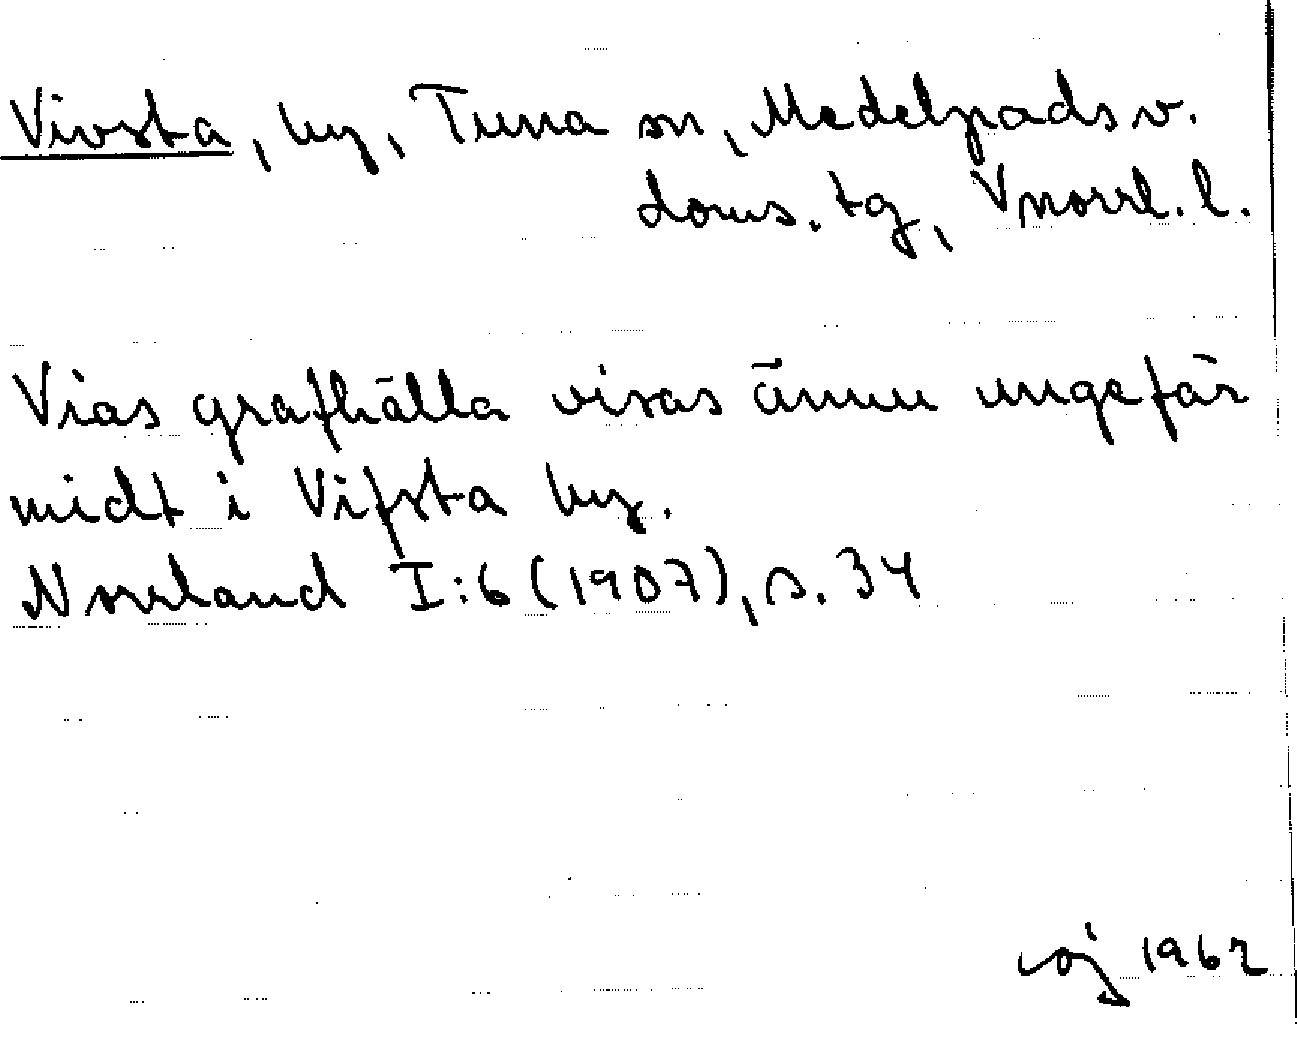 Vivsta, by, Tuna sn, Medelpads v.
doms. tg, Vnorrl. l.
Vias grafhälla visas ännu ungefär
midt i Vifsta by.
Norrland I:6 (1907), s. 34
1962